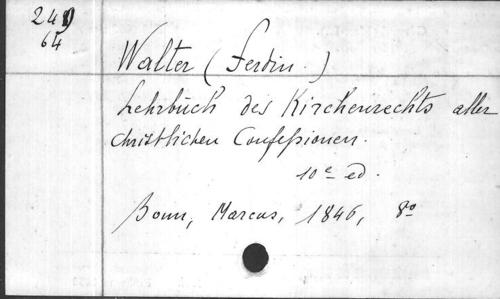 24
64
Walter (Ferdin.)
Lehrbuch des Kirchenrechts aller
christlichen Confessionen.
10e ed.
Bonn, Marcus, 1846, 8o